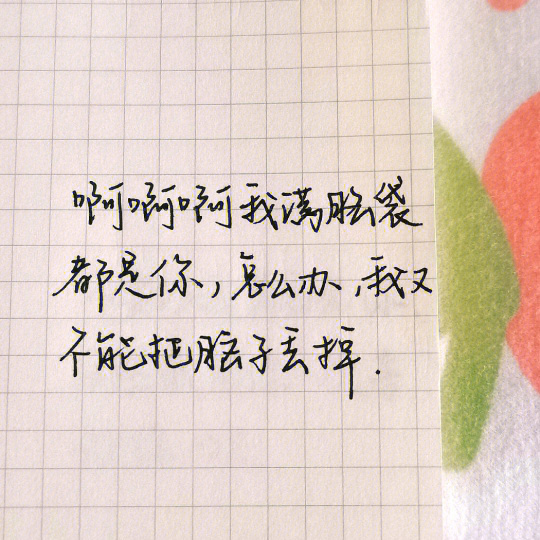 啊啊啊我满脑袋
都是你,怎么办,我又
不能把脑子丢掉.